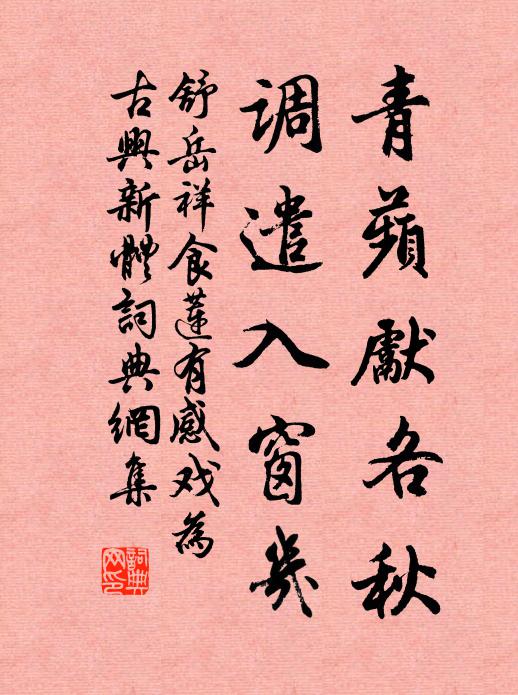 青蘋獻各秋
调遣入窗幾
舒岳祥食蓮有感戏為
古興新體詞典網集
詞典
网印